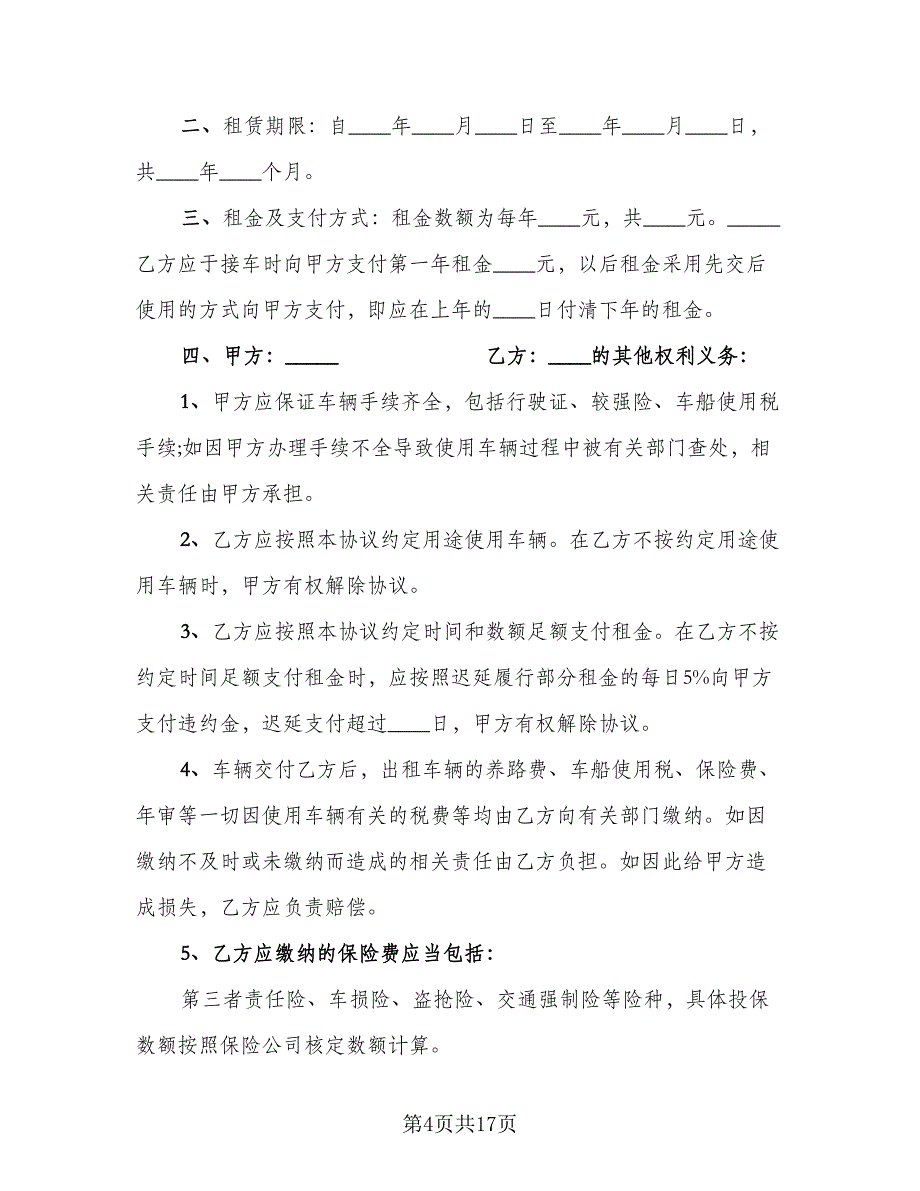 二、租赁期限：自____年____月____日至____年____月____日，
共____年____个月。
三、租金及支付方式：租金数额为每年____元，共____元。_____
乙方应于接车时向甲方支付第一年租金____元，以后租金采用先交后
使用的方式向甲方支付，即应在上年的____日付清下年的租金。
四、甲方：_____ 乙方：____的其他权利义务：
1、甲方应保证车辆手续齐全，包括行驶证、较强险、车船使用税
手续;如因甲方办理手续不全导致使用车辆过程中被有关部门查处，相
关责任由甲方承担。
2、乙方应按照本协议约定用途使用车辆。在乙方不按约定用途使
用车辆时，甲方有权解除协议。
3、乙方应按照本协议约定时间和数额足额支付租金。在乙方不按
约定时间足额支付租金时，应按照迟延履行部分租金的每日5%向甲方
支付违约金，迟延支付超过____日，甲方有权解除协议。
4、车辆交付乙方后，出租车辆的养路费、车船使用税、保险费、
年审等一切因使用车辆有关的税费等均由乙方向有关部门缴纳。如因
缴纳不及时或未缴纳而造成的相关责任由乙方负担。如因此给甲方造
成损失，乙方应负责赔偿。
5、乙方应缴纳的保险费应当包括：
第三者责任险、车损险、盗抢险、交通强制险等险种，具体投保
数额按照保险公司核定数额计算。
第4页共17页